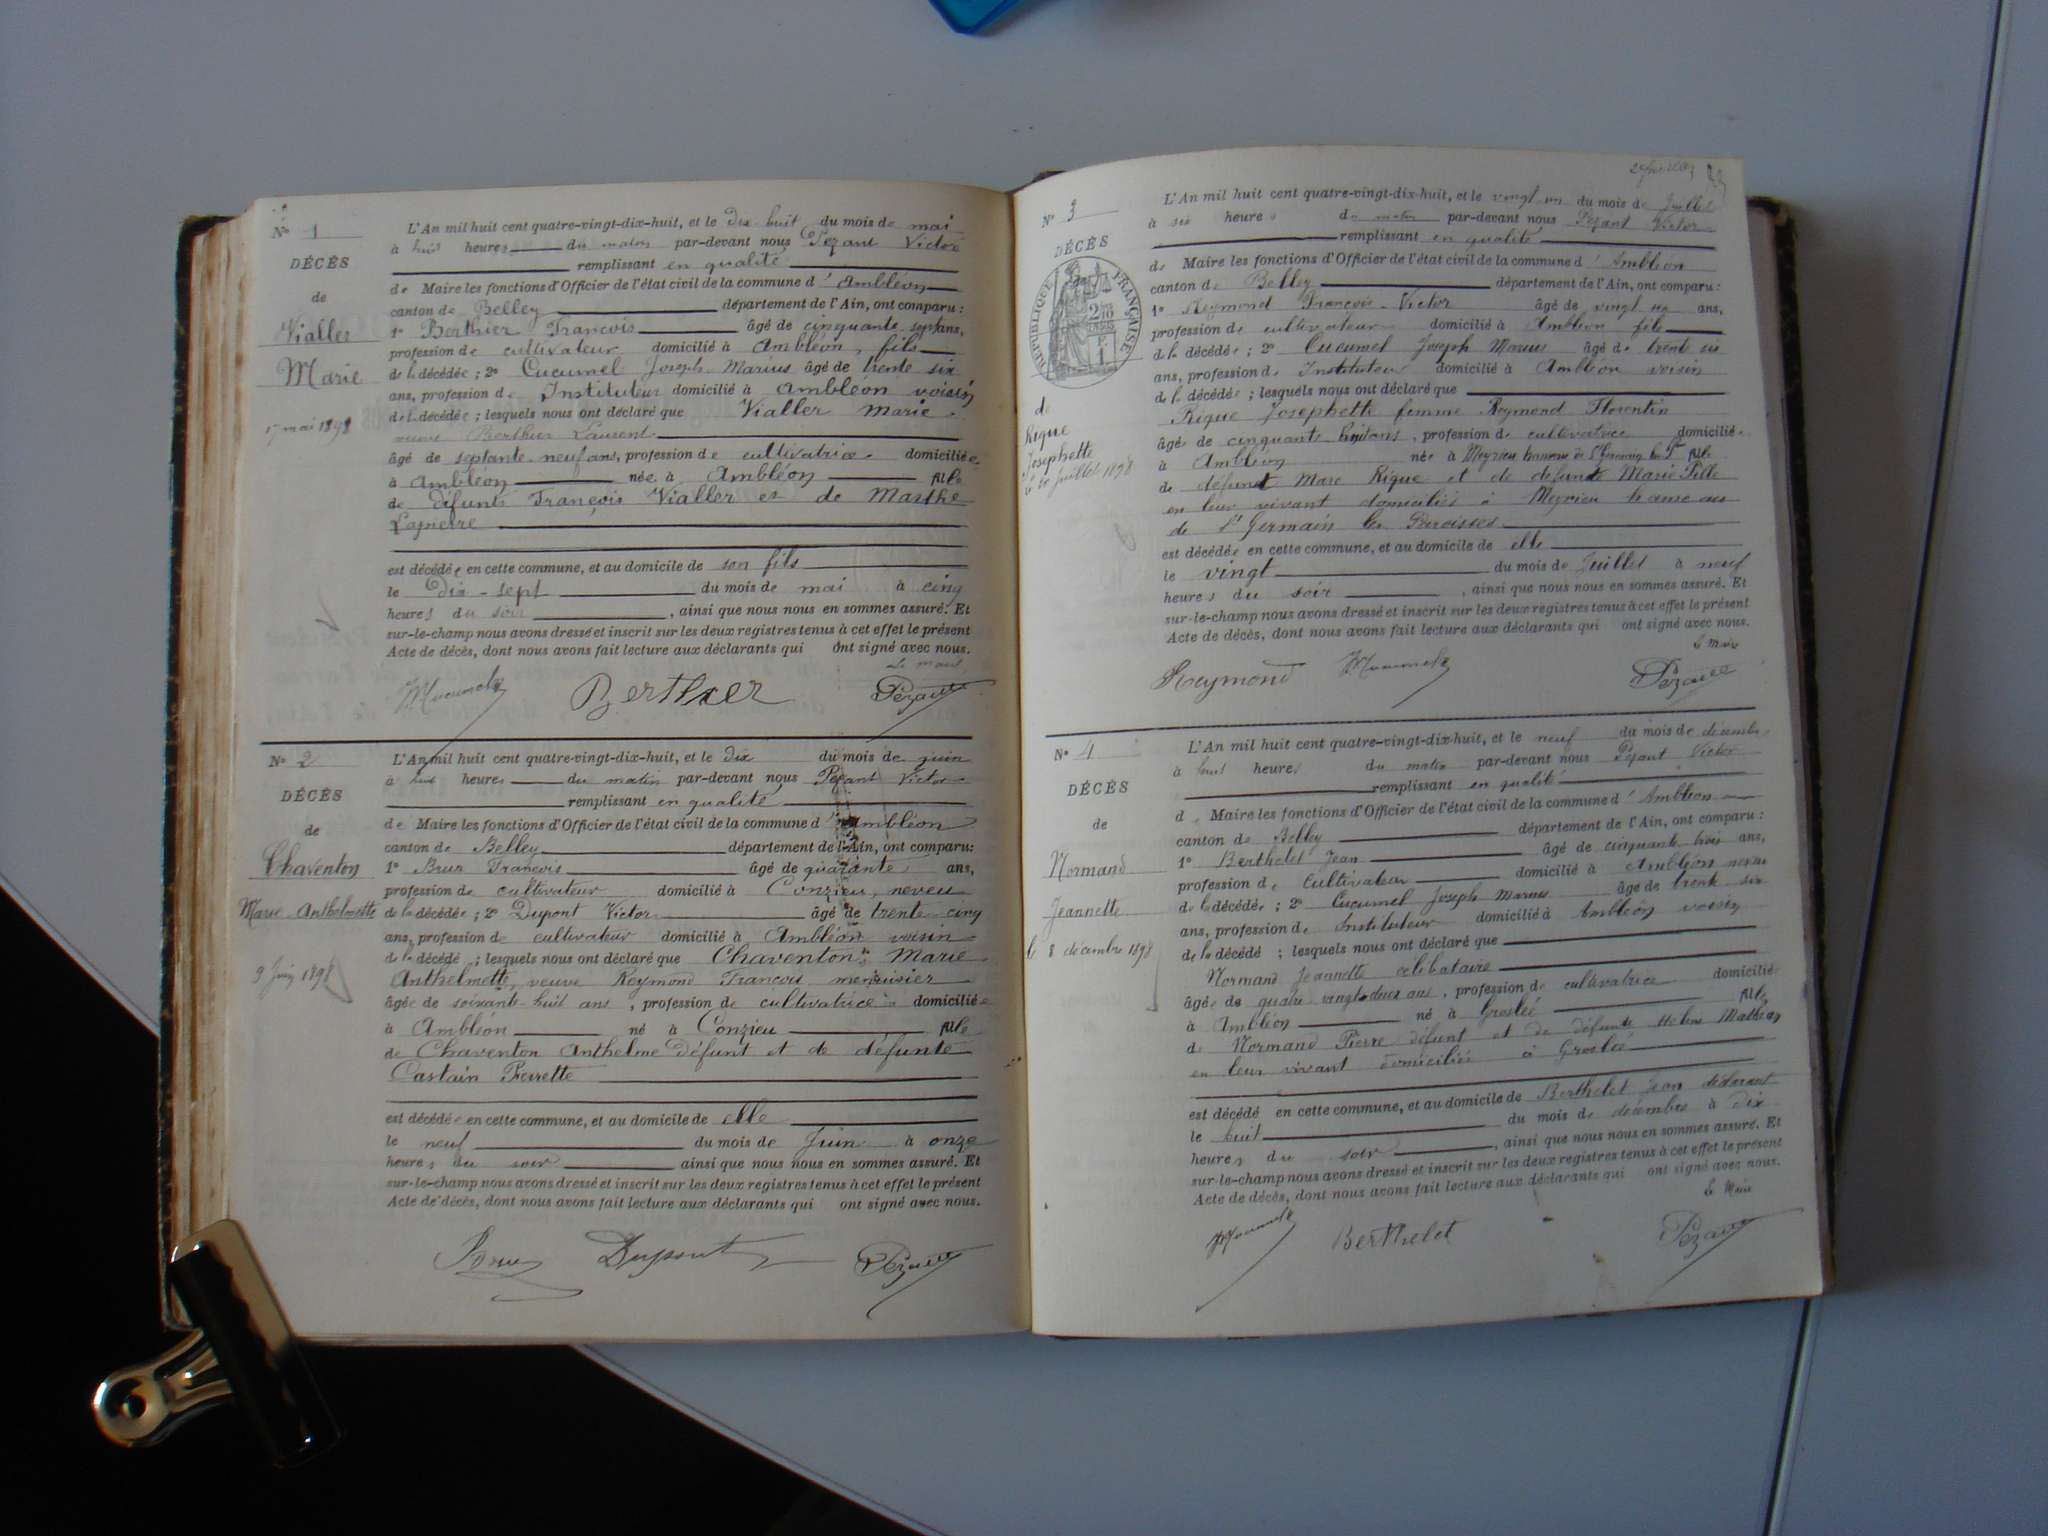 N° 1
DÉCÈS
de
Vialler
Marie
17 mai 1898
L'An mil huit cent quatre-vingt-dix-huit, et le dix huit du mois de mai
à huit heures du matin par-devant nous Pezant Victor
remplissant en qualité
de Maire les fonctions d'Officier de l'état civil de la commune d' Ambléon
canton de Belley département de l'Ain, ont comparu :
1° Berthier François âgé de cinquante sept ans,
profession de cultivateur domicilié à Ambléon, fils
de la décédée ; 2° Cucumel Joseph Marius âgé de trente six
ans, profession de Instituteur domicilié à Ambléon voisin
de la décédée ; lesquels nous ont déclaré que Vialler Marie
veuve Berthier Laurent
âgé de septante-neuf ans, profession de cultivatrice domiciliée
à Ambléon née à Ambléon fille
de défunts François Vialler et de Marthe
Lapierre
est décédée en cette commune, et au domicile de son fils
le Dix-sept du mois de mai à cinq
heures du soir, ainsi que nous nous en sommes assuré. Et
sur-le-champ nous avons dressé et inscrit sur les deux registres tenus à cet effet le présent
Acte de décès, dont nous avons fait lecture aux déclarants qui ont signé avec nous.
Le maire
JMucumel Berthier Pezant
N° 2
DÉCÈS
de
Chaventon
Marie-Anthelmette
9 Juin 1898
L'An mil huit cent quatre-vingt-dix-huit, et le dix du mois de juin
à huit heures du matin par-devant nous Pezant Victor
remplissant en qualité
de Maire les fonctions d'Officier de l'état civil de la commune d' Ambléon
canton de Belley département de l'Ain, ont comparu:
1° Brun François âgé de quarante ans,
profession de cultivateur domicilié à Conzieu, neveu
de la décédée ; 2° Dupont Victor âgé de trente-cinq
ans, profession de cultivateur domicilié à Ambléon voisin
de la décédée ; lesquels nous ont déclaré que Chaventon Marie
Anthelmette, veuve Reymond François menuisier
âgée de soixante-huit ans, profession de cultivatrice domiciliée
à Ambléon né à Conzieu fille
de Chaventon Anthelme défunt et de défunte
Castain Pierrette
est décédée en cette commune, et au domicile de elle
le neuf du mois de Juin à onze
heures du soir ainsi que nous nous en sommes assuré. Et
sur-le-champ nous avons dressé et inscrit sur les deux registres tenus à cet effet le présent
Acte de décès, dont nous avons fait lecture aux déclarants qui ont signé avec nous.
Brun Dupont Pezant
N° 3
DÉCÈS
RÉPUBLIQUE FRANÇAISE
de
Rique
Josephette
le 20 Juillet 1898
L'An mil huit cent quatre-vingt-dix-huit, et le vingt un du mois de Juillet
à six heures du matin par-devant nous Pezant Victor
remplissant en qualité
de Maire les fonctions d'Officier de l'état civil de la commune d' Ambléon
canton de Belley département de l'Ain, ont comparu :
1° Reymond François-Victor âgé de vingt un ans,
profession de cultivateur domicilié à Ambléon fils
de la décédée ; 2° Cucumel Joseph Marius âgé de trente six
ans, profession de Instituteur domicilié à Ambléon voisin
de la décédée ; lesquels nous ont déclaré que
Rique Josephette femme Reymond Florentin
âgée de cinquante huit ans, profession de cultivatrice domiciliée
à Ambléon née à Meyrieu hameau de St Germain les P. fille
de défunt Marc Rique et de défunte Marie Fille
en leur vivant domiciliés à Meyrieu hameau
de St Germain les Paroisses
est décédée en cette commune, et au domicile de elle
le vingt du mois de Juillet à neuf
heures du soir, ainsi que nous nous en sommes assuré. Et
sur-le-champ nous avons dressé et inscrit sur les deux registres tenus à cet effet le présent
Acte de décès, dont nous avons fait lecture aux déclarants qui ont signé avec nous.
Le Maire
Reymond JMucumel Pezant
N° 4
DÉCÈS
de
Normand
Jeannette
le 8 décembre 1898
L'An mil huit cent quatre-vingt-dix-huit, et le neuf du mois de décembre
à huit heures du matin par-devant nous Pezant Victor
remplissant en qualité
de Maire les fonctions d'Officier de l'état civil de la commune d' Ambléon
canton de Belley département de l'Ain, ont comparu :
1° Berthelet Jean âgé de cinquante trois ans,
profession de Cultivateur domicilié à Ambléon neveu
de la décédée ; 2° Cucumel Joseph Marius âgé de trente six
ans, profession de Instituteur domicilié à Ambléon voisin
de la décédé ; lesquels nous ont déclaré que
Normand Jeannette célibataire
âgée de quatre vingt deux ans, profession de cultivatrice domicilié
à Ambléon né à Groslée fille
de Normand Pierre défunt et de défunte Hélène Mathian
en leur vivant domiciliés à Groslée
est décédé en cette commune, et au domicile de Berthelet Jean déclarant
le huit du mois de décembre à dix
heures du soir, ainsi que nous nous en sommes assuré. Et
sur-le-champ nous avons dressé et inscrit sur les deux registres tenus à cet effet le présent
Acte de décès, dont nous avons fait lecture aux déclarants qui ont signé avec nous.
Le Maire
JMucumel Berthelet Pezant